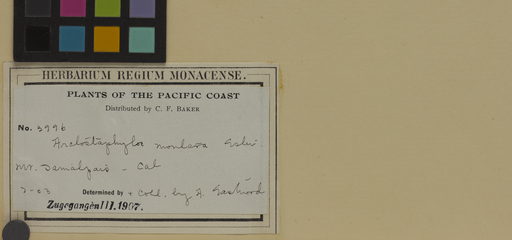 HERBARIUM REGIUM MONACENSE.
PLANTS OF THE PACIFIC COAST
Distributed by C. F. BAKER
No. 3996
Arctostaphylos montana
Mt. Tamalpais - Cal
7-03 Determined by + Coll. by A. Eastwood
Zugegangen III. 1907.